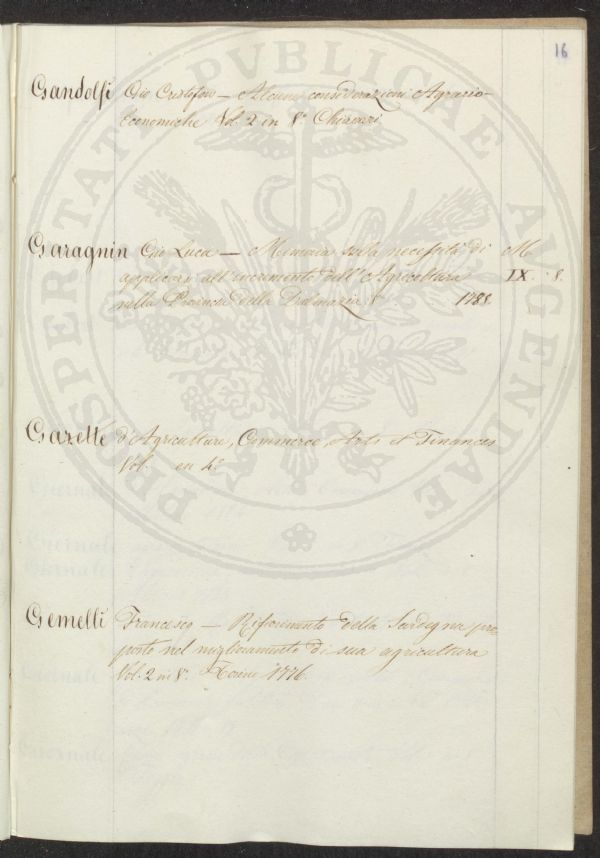 16
Gandolfi Gio Cristoforo — Alcune considerazioni Agrario-
Economiche Vol. 2 in 8.° Chiavari
Garagnin Gio Luca — Memoria sulla necessità di M
applicarsi all'incremento dell'Agricoltura IX. 8.
nella Provincia della Dalmazia 8° 1788
Gazette d'Agriculture, Commerce, Arts et Finances
Vol. en 4°
Gemelli Francesco — Rifiorimento della Sardegna pro-
posto nel miglioramento di sua agricultura
Vol. 2 in 8.° Torino 1776.
PUBLICAE PROSPERITATI AUGENDAE